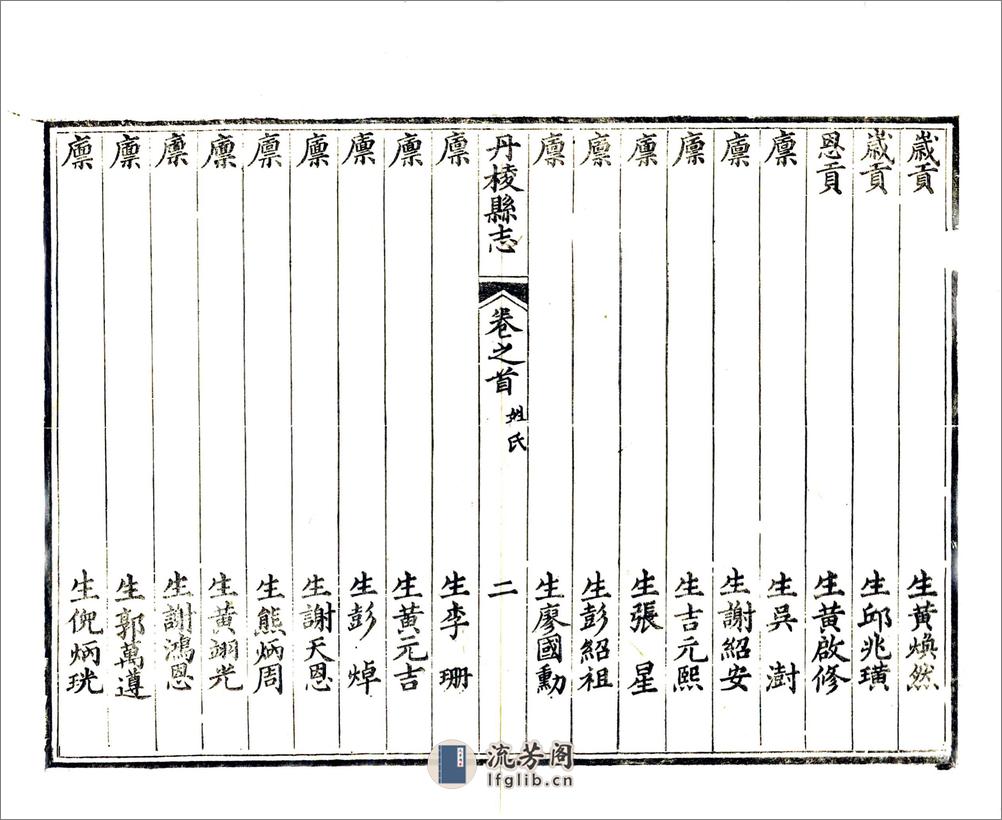 歲貢生黃煥然
歲貢生邱兆璜
恩貢生黃啟修
廩生吳澍
廩生謝紹安
廩生吉元熙
廩生張星
廩生彭紹祖
廩生廖國勳
丹棱縣志 卷之首 姓氏 二
廩生李珊
廩生黃元吉
廩生彭焯
廩生謝天恩
廩生熊炳周
廩生黃翊光
廩生謝鴻恩
廩生郭萬遵
廩生倪炳珖
流芳阁
lfglib.cn